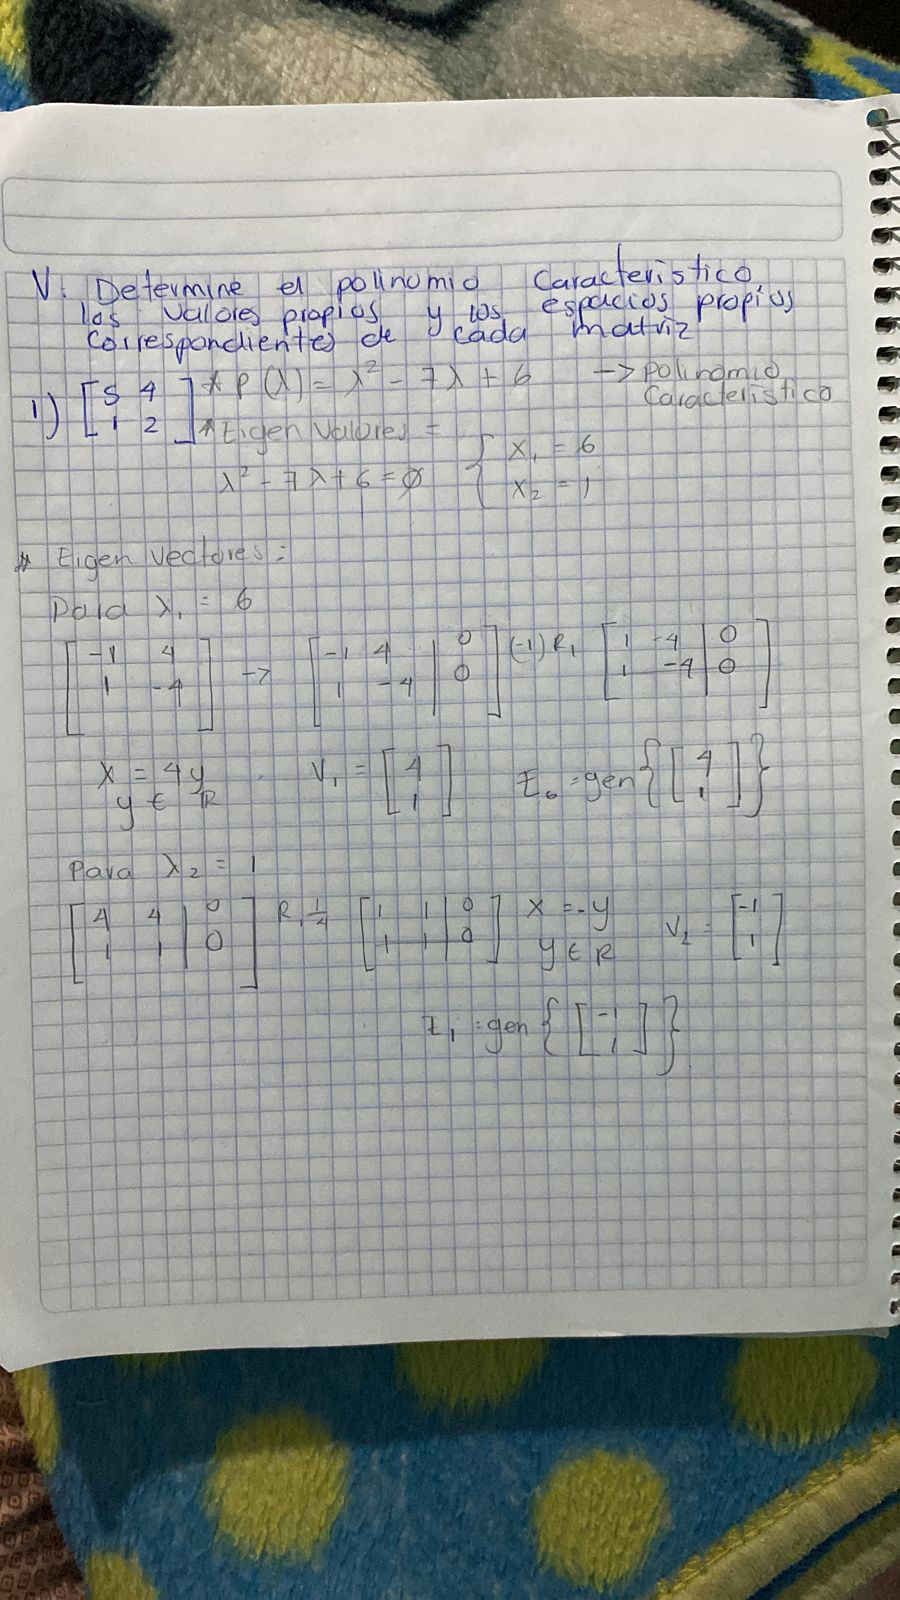 V. Determine el polinomio Caracteristico,
los valores propios y los espacios propios
Correspondientes de cada matriz
1) [5 4
1 2] * P(λ) = λ² - 7λ + 6 -> Polinomio
Caracteristico
* Eigen Valores =
λ² - 7λ + 6 = 0 { x₁ = 6
x₂ = 1
* Eigen vectores:
Para λ₁ = 6
[-1 4
1 -4] -> [-1 4 | 0
1 -4 | 0] (-1) R₁ [1 -4 | 0
1 -4 | 0]
x = 4y
y ∈ R
V₁ = [4
1]
E₆ = gen { [4
1] }
Para λ₂ = 1
[4 4 | 0
1 1 | 0] R₁ 1/4 [1 1 | 0
1 1 | 0]
x = -y
y ∈ R
V₂ = [-1
1]
E₁ = gen { [-1
1] }